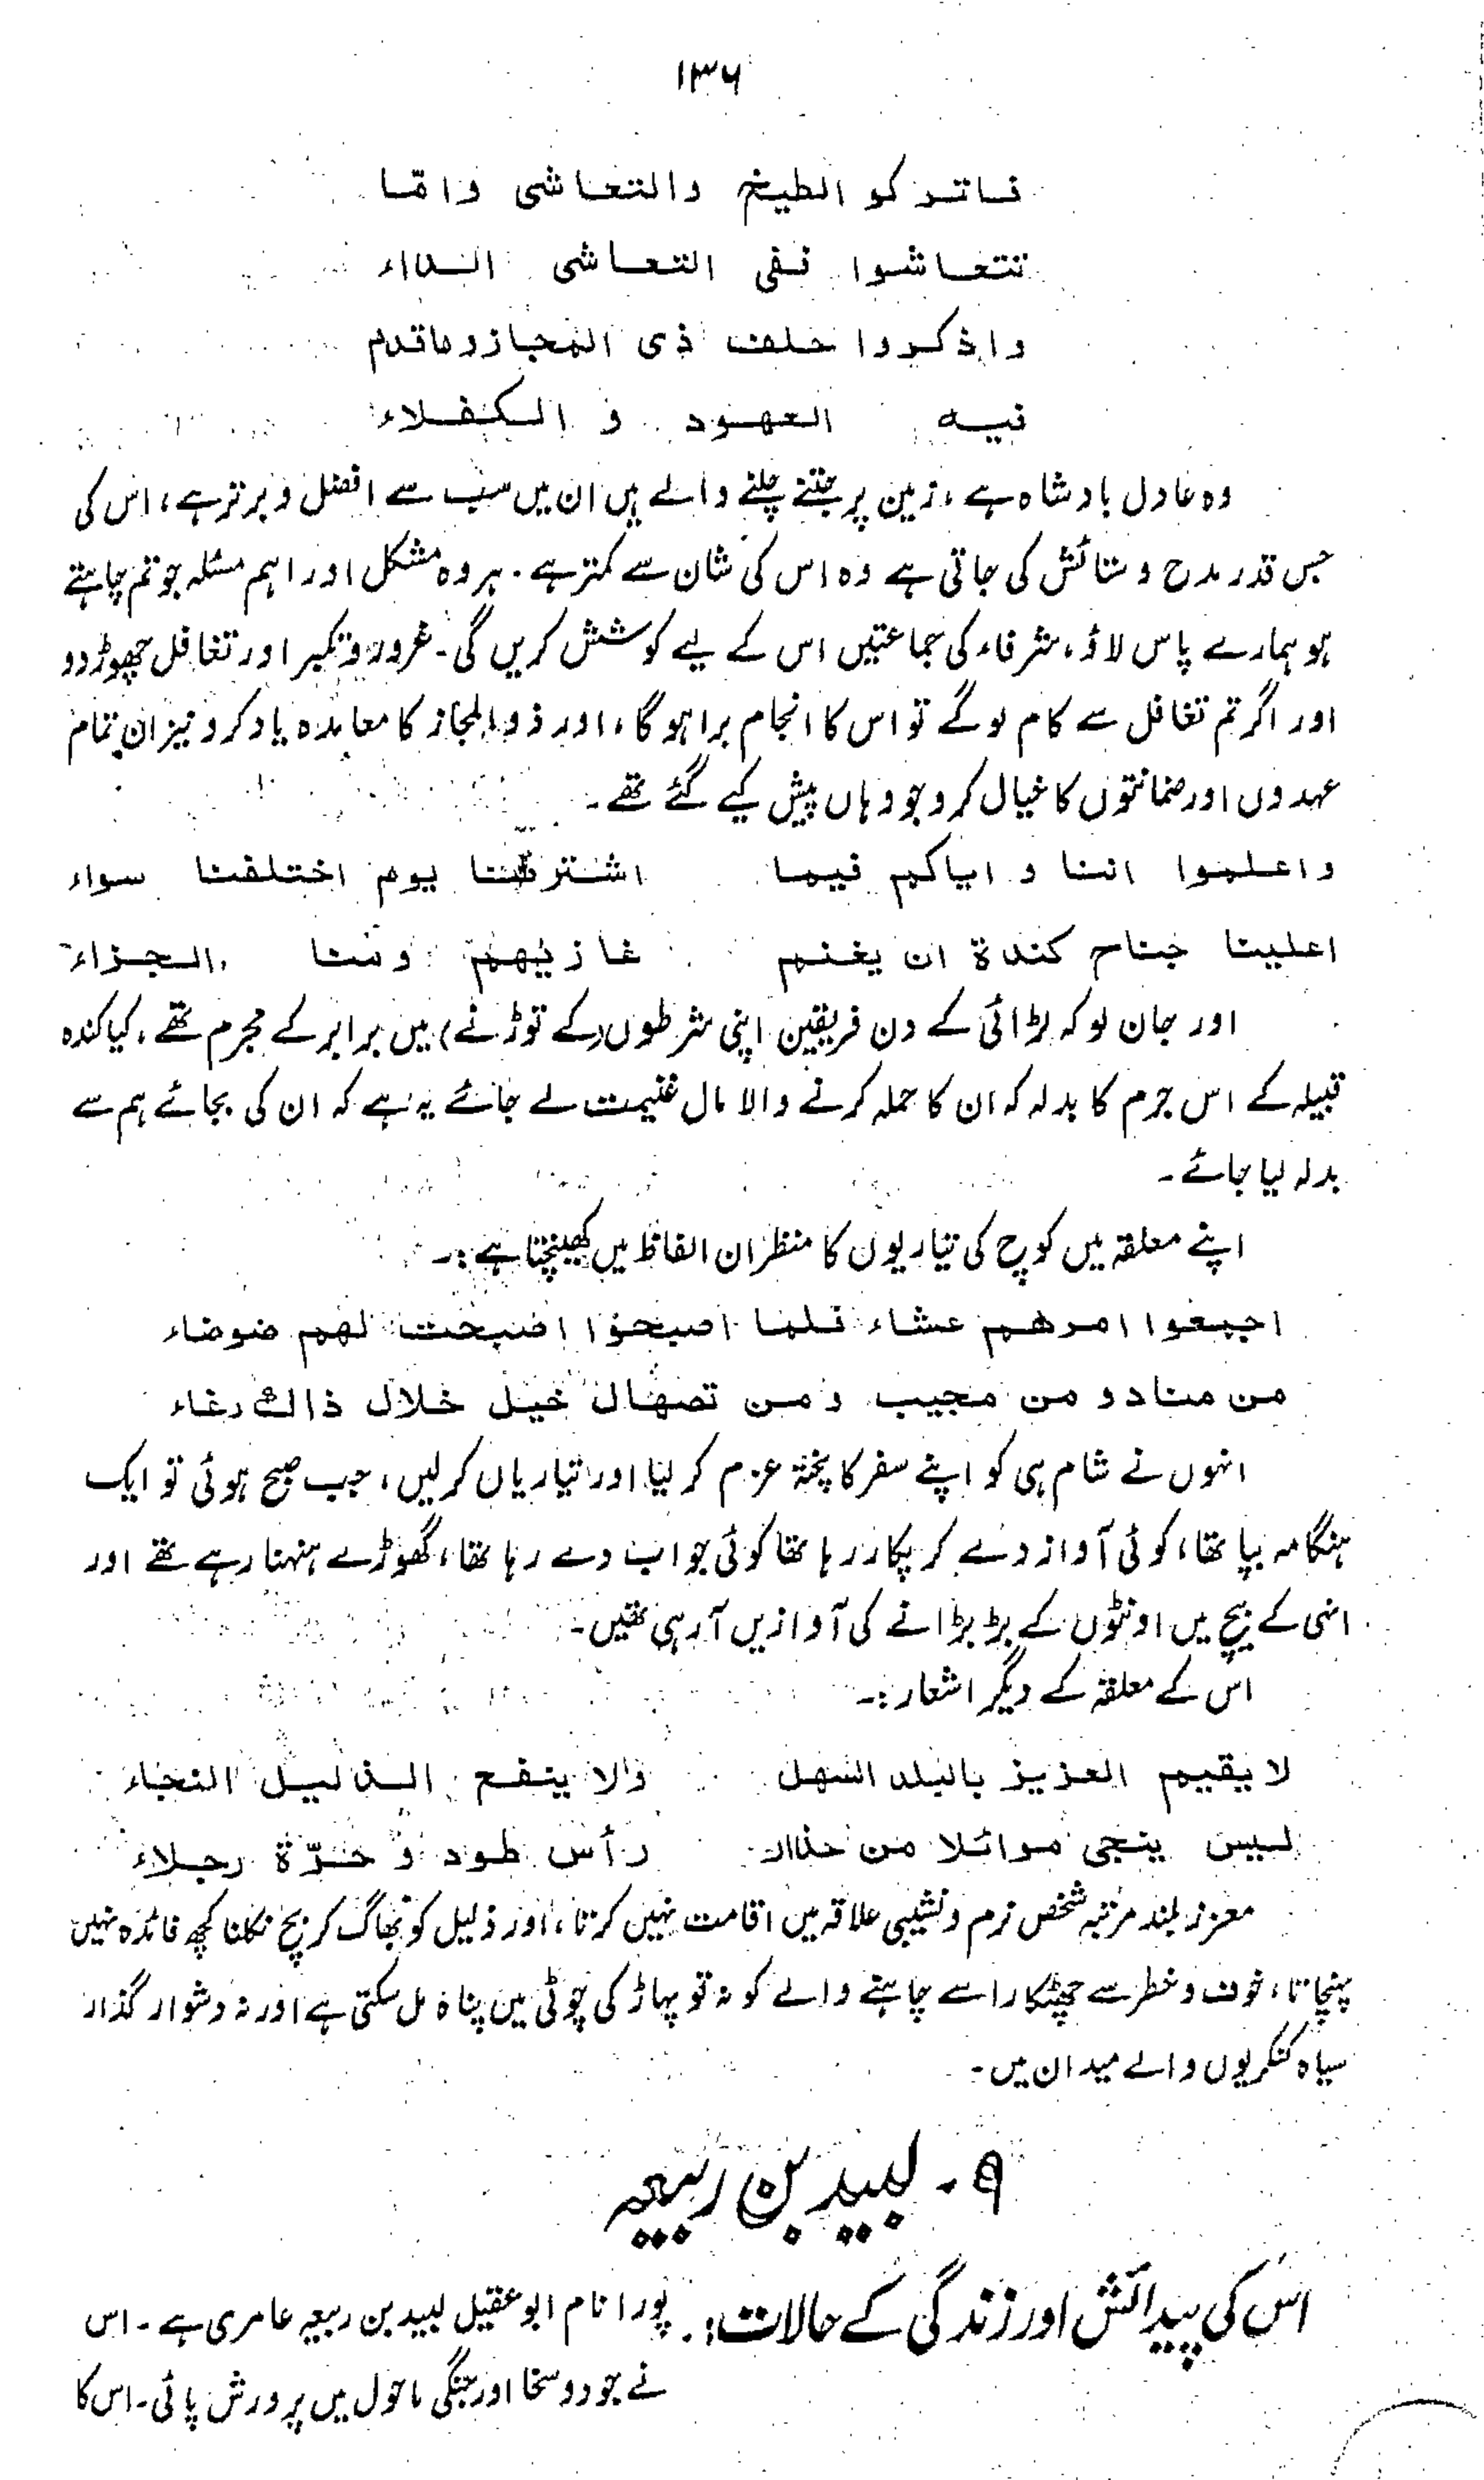 ۱۳۶
فاتركو الطيخ والتعاشى وامّا
تتعاشوا ففى التعاشى الداء
واذكروا حلف ذى المجاز وماقدم
فيه العهود و الكفلاء
وہ عادل بادشاہ ہے ، زمین پر جتنے چلنے والے ہیں ان میں سب سے افضل و برتر ہے ، اس کی
جس قدر مدح و ستائش کی جاتی ہے وہ اس کی شان سے کمتر ہے ۔ ہر وہ مشکل اور اہم مسئلہ جو تم چاہتے
ہو ہمارے پاس لاؤ ، شرفاء کی جماعتیں اس کے لیے کوشش کریں گی ۔ غرور و تکبر اور تغافل چھوڑ دو
اور اگر تم تغافل سے کام لو گے تو اس کا انجام برا ہو گا ، اور ذوالمجاز کا معاہدہ یاد کرو نیز ان تمام
عہدوں اور ضمانتوں کا خیال کرو جو وہاں پیش کیے گئے تھے ۔
واعلموا اننا و اياكم فيما اشترطنا يوم اختلفنا سواء
اعلينا جناح كندة ان يغنم غازيهم ومنا الجزاء
اور جان لو کہ لڑائی کے دن فریقین اپنی شرطوں (کے توڑنے) میں برابر کے مجرم تھے ، کیا کندہ
قبیلہ کے اس جرم کا بدلہ کہ ان کا حملہ کرنے والا مال غنیمت لے جائے یہ ہے کہ ان کی بجائے ہم سے
بدلہ لیا جائے ۔
اپنے معلقہ میں کوچ کی تیاریوں کا منظر ان الفاظ میں کھینچتا ہے :۔
اجمعوا امرهم عشاء فلما اصبحوا اصبحت لهم ضوضاء
من مناد و من مجيب و من تصهال خيل خلال ذالك رغاء
انہوں نے شام ہی کو اپنے سفر کا پختہ عزم کر لیا اور تیاریاں کر لیں ، جب صبح ہوئی تو ایک
ہنگامہ بپا تھا ، کوئی آواز دے کر پکار رہا تھا کوئی جواب دے رہا تھا ، گھوڑے ہنہنا رہے تھے اور
انہی کے بیچ میں اونٹوں کے بڑبڑانے کی آوازیں آ رہی تھیں ۔
اس کے معلقہ کے دیگر اشعار :۔
لا يقيم العزيز بالبلد السهل ولا ينفع الذليل النجاء
ليس ينجى موائلا من حذار رأس طود و حرّة رجلاء
معزز بلند مرتبہ شخص نرم و نشیبی علاقہ میں اقامت نہیں کرتا ، اور ذلیل کو بھاگ کر بچ نکلنا کچھ فائدہ نہیں
پہنچاتا ، خوف و خطر سے چھٹکارا سے چاہنے والے کو نہ تو پہاڑ کی چوٹی میں پناہ مل سکتی ہے اور نہ دشوار گذار
سیاہ کنکریوں والے میدان میں ۔
۹ ۔ لبید بن ربیعہ
اس کی پیدائش اور زندگی کے حالات :۔ پورا نام ابو عقیل لبید بن ربیعہ عامری ہے ۔ اس
نے جود و سخا اور جنگی ماحول میں پرورش پائی ۔ اس کا